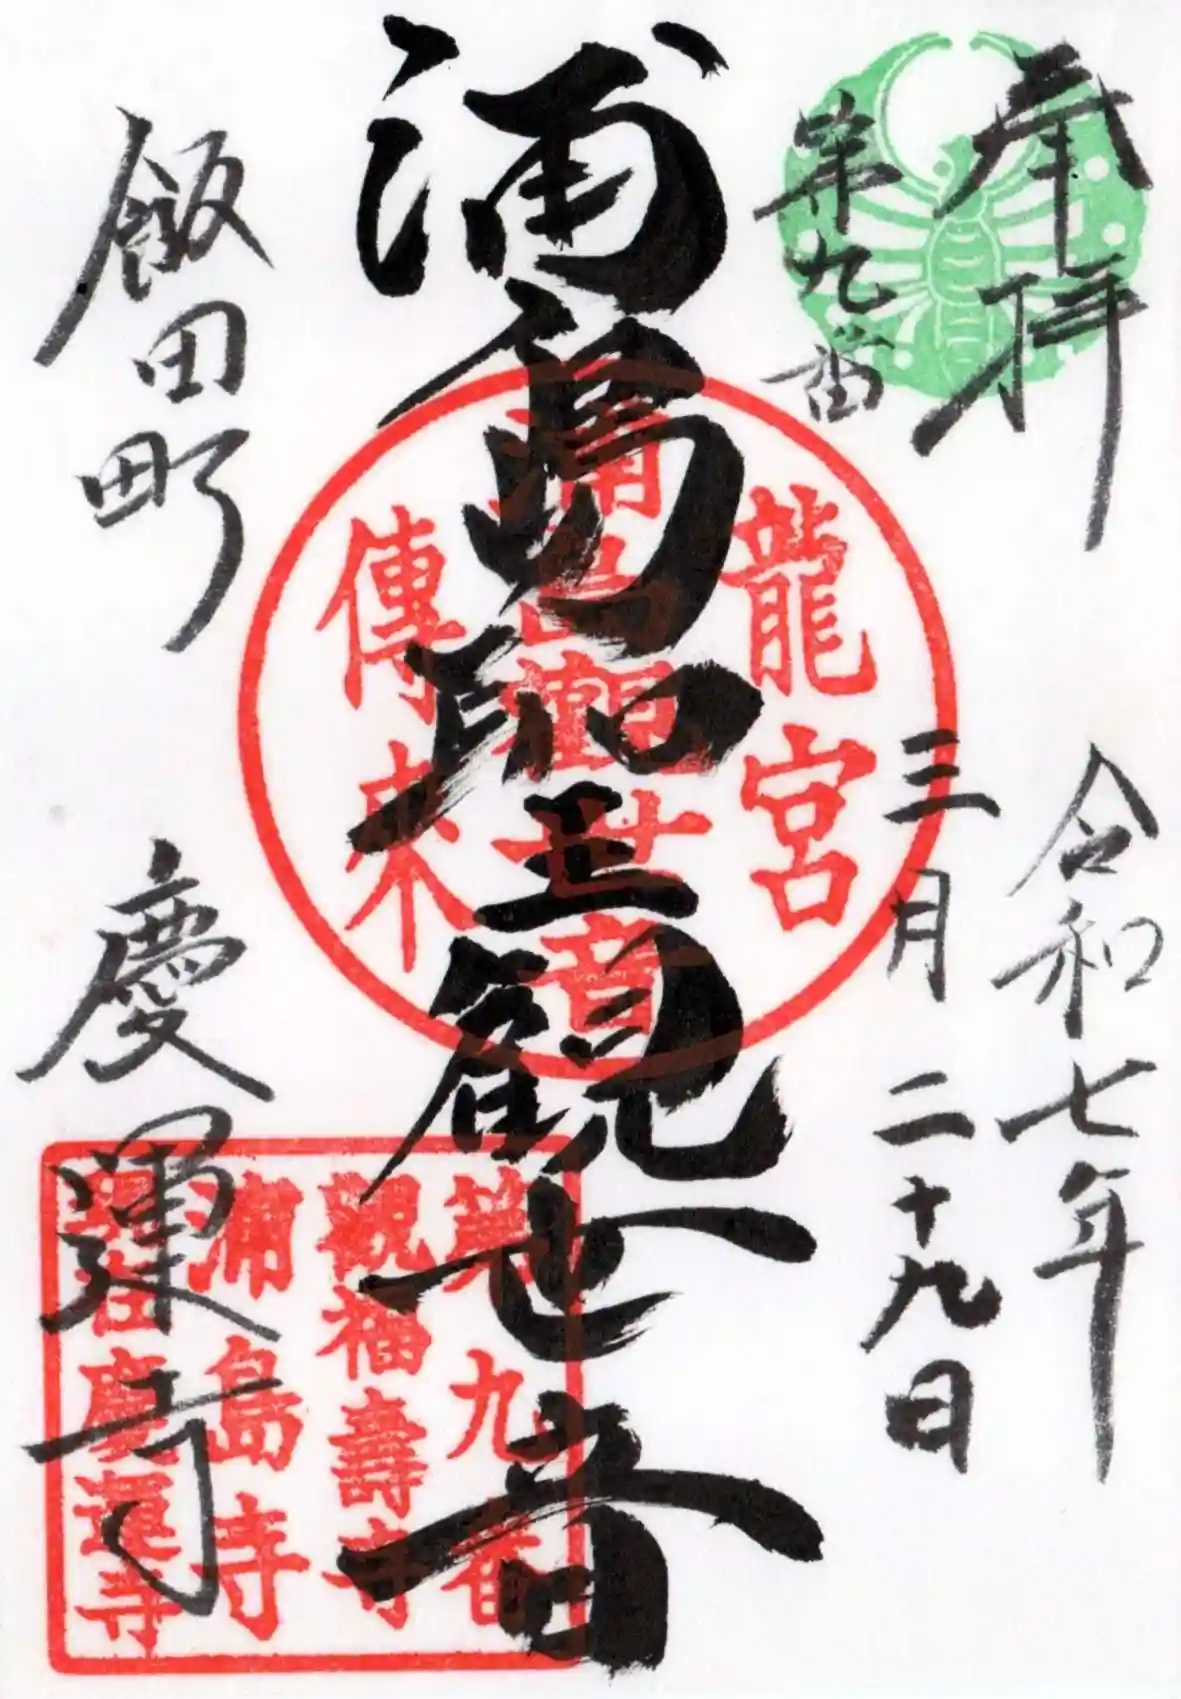 奉拝
第九番
令和七年
三月二十九日
浦島聖観世音
龍宮
浦島観世音
傳来
飯田町
慶運寺
第九番
観福壽寺
浦島寺
慶運寺